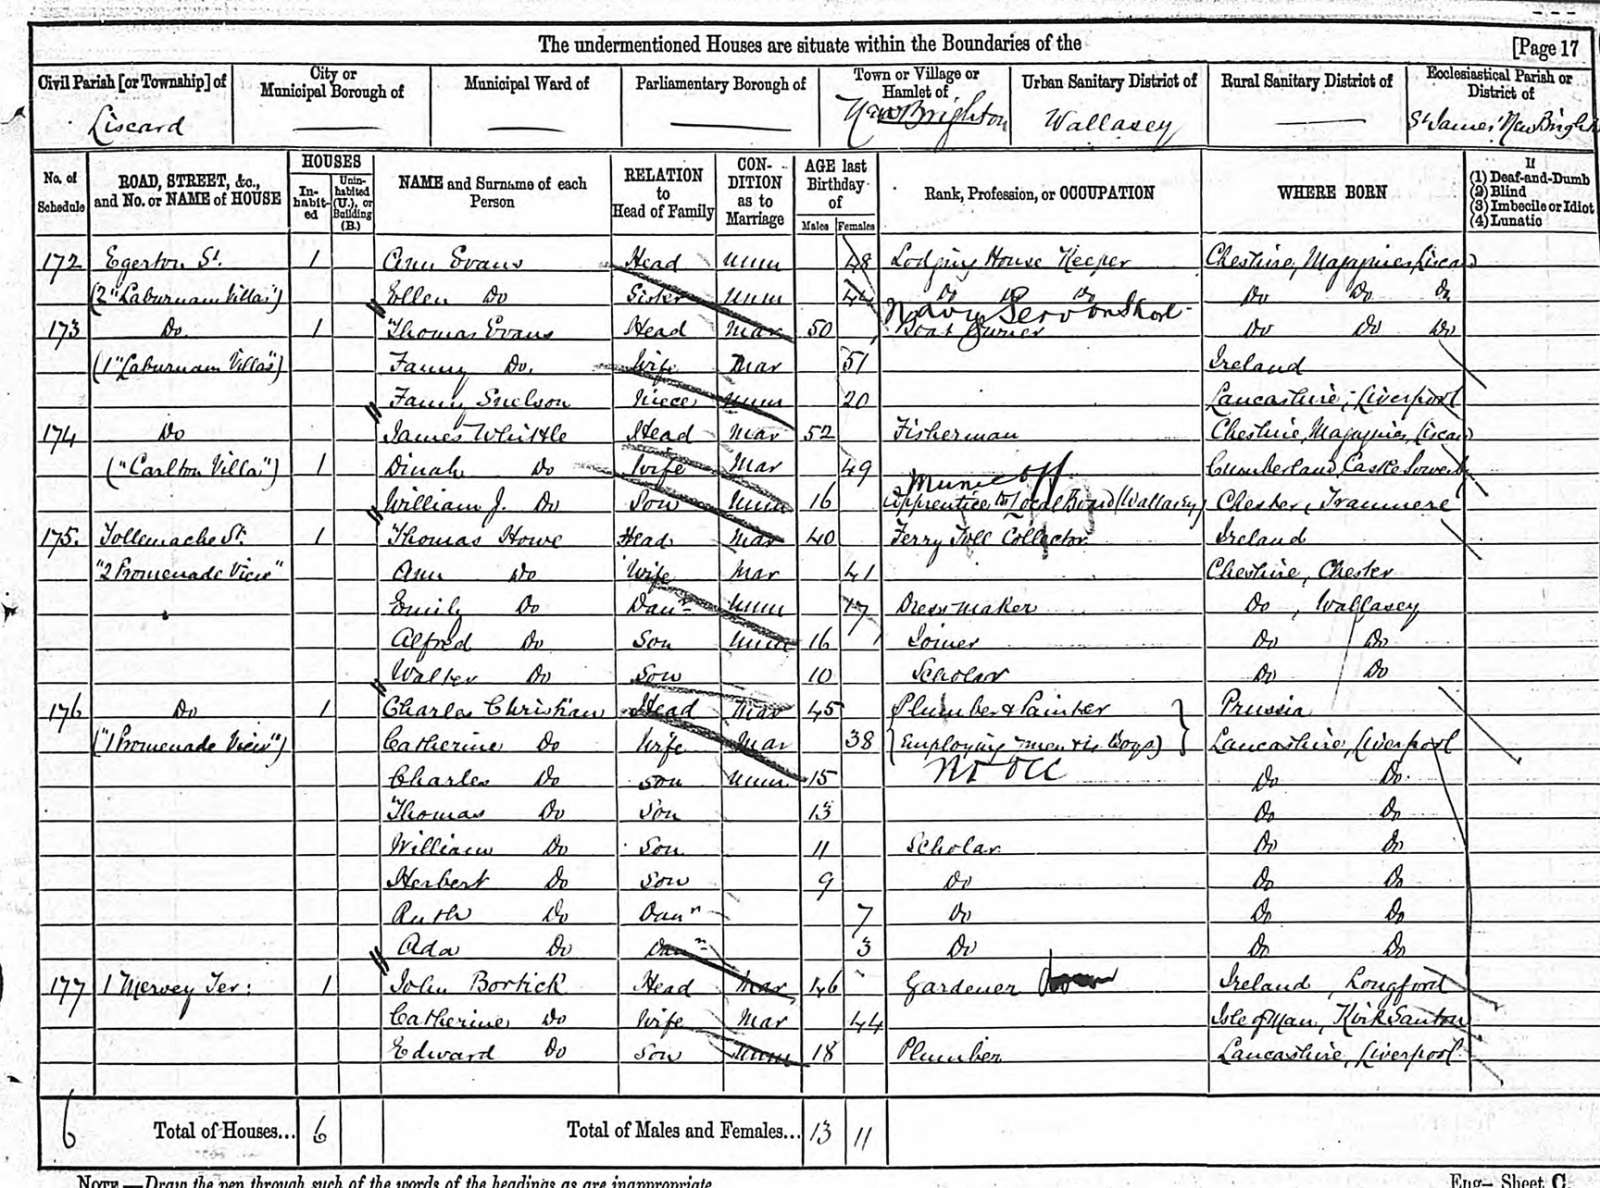 The undermentioned Houses are situate within the Boundaries of the [Page 17
Civil Parish [or Township] of City or Municipal Borough of Municipal Ward of Parliamentary Borough of Town or Village or Hamlet of Urban Sanitary District of Rural Sanitary District of Ecclesiastical Parish or District of
Liscard New Brighton Wallasey St James' New Brighton
No. of Schedule ROAD, STREET, &c., and No. or NAME of HOUSE HOUSES In-habit-ed Unin-habited (U.), or Building (B.) NAME and Surname of each Person RELATION to Head of Family CON-DITION as to Marriage AGE last Birthday of Males Females Rank, Profession, or OCCUPATION WHERE BORN If (1) Deaf-and-Dumb (2) Blind (3) Imbecile or Idiot (4) Lunatic
172 Egerton St. 1 Ann Evans Head Unm 48 Lodging House Keeper Cheshire, Magazines, Liscard
(2 "Laburnam Villas") Ellen Do Sister Unm 44 Do Do Do Do Do Do
173 Do 1 Thomas Evans Head Mar 50 Boat Owner Do Do Do
(1 "Laburnam Villas") Fanny Do. Wife Mar 51 Ireland
Fanny Snelson Niece Unm 20 Lancashire, Liverpool
174 Do James Whittle Head Mar 52 Fisherman Cheshire, Magazines, Liscard
("Carlton Villa") 1 Dinah Do Wife Mar 49 Cumberland, Castle Sowerby
Munic Off
William J. Do Son Unm 16 Apprentice to Local Board (Wallasey) Chester, Tranmere
175. Tollemache St. 1 Thomas Howe Head Mar 40 Ferry Toll Collector Ireland
"2 Promenade View" Ann Do Wife Mar 41 Cheshire, Chester
Emily Do Daur Unm 17 Dress maker Do, Wallasey
Alfred Do Son Unm 16 Joiner Do Do
Walter Do Son 10 Scholar Do Do
176 Do 1 Charles Christian Head Mar 45 Plumber & Painter Prussia
("1 Promenade View") Catherine Do Wife Mar 38 (Employing 7 men & 4 Boys) Lancashire, Liverpool
Charles Do Son Unm 15 No occ Do Do
Thomas Do Son 13 Do Do
William Do Son 11 Scholar Do Do
Herbert Do Son 9 Do Do Do
Ruth Do Daur 7 Do Do Do
Ada Do Daur 3 Do Do Do
177 1 Mersey Ter: 1 John Bortick Head Mar 46 Gardener Ireland, Longford
Catherine Do Wife Mar 44 Isle of Man, Kirk Santon
Edward Do Son Unm 18 Plumber Lancashire, Liverpool
6 Total of Houses... 6 Total of Males and Females... 13 11
NOTE.—Draw the pen through such of the words of the headings as are inappropriate. Eng— Sheet C.